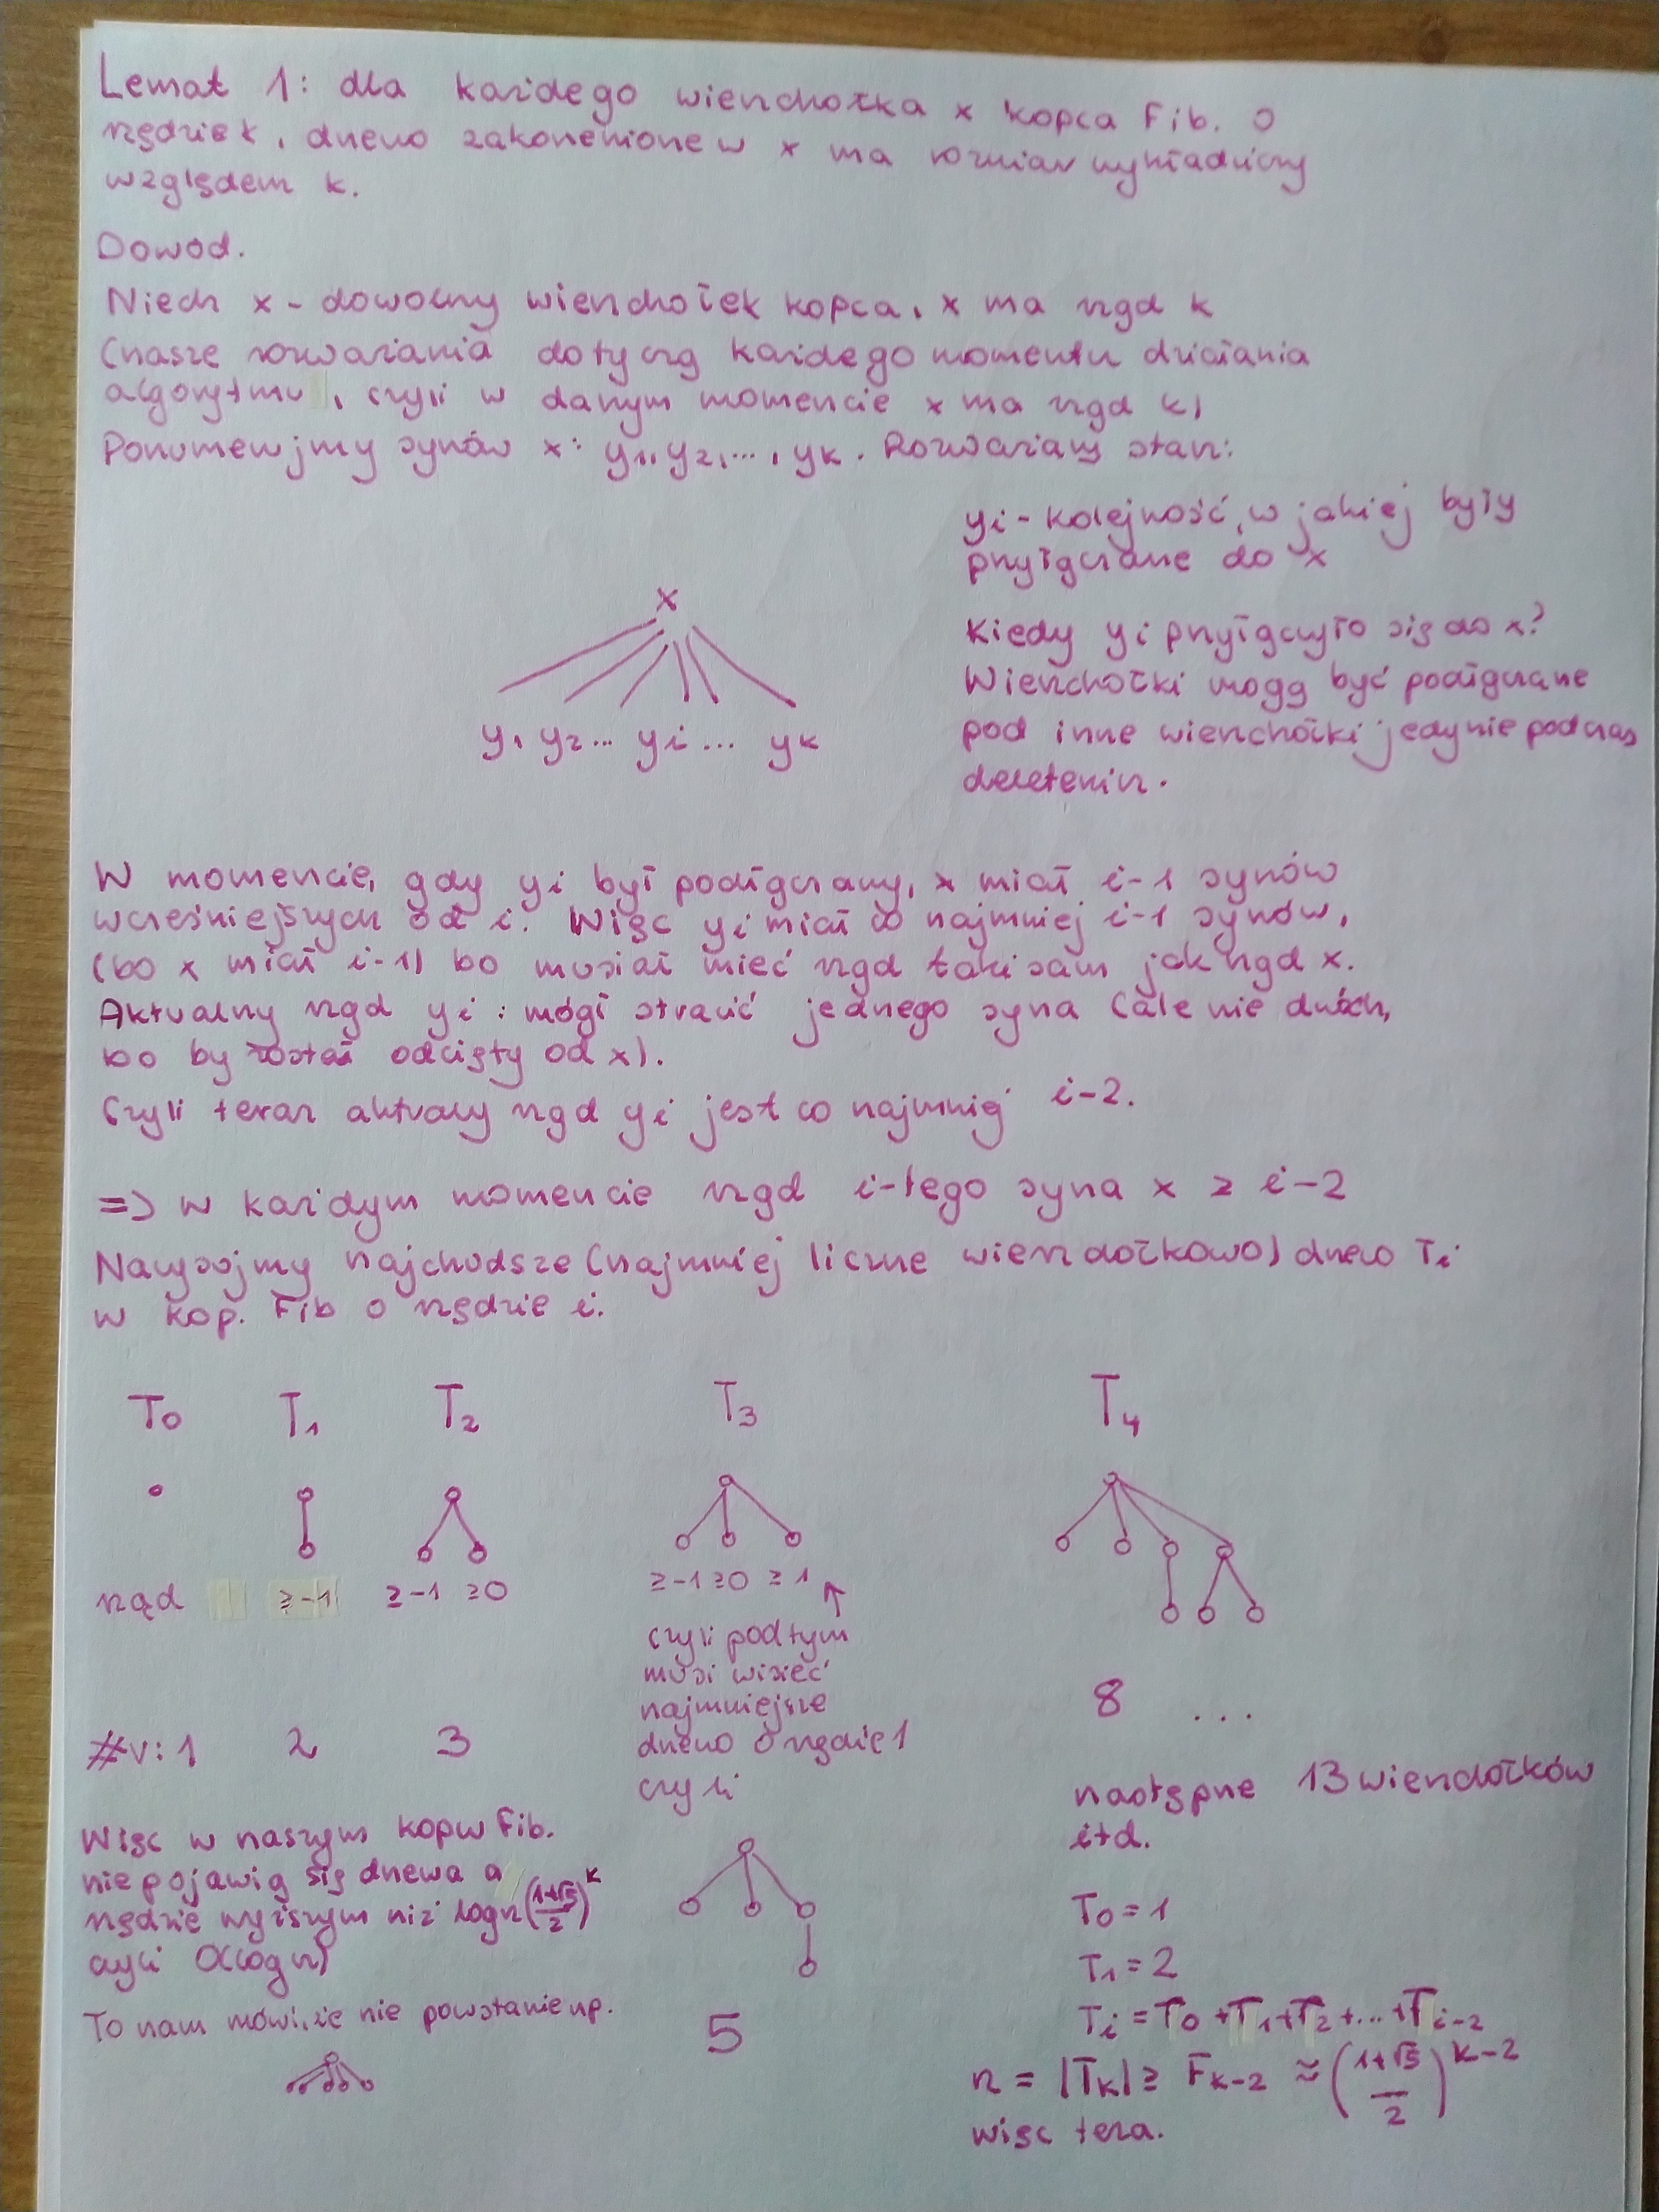 Lemat 1: dla każdego wierzchołka x kopca Fib. o
rzędzie k, drzewo zakorzenione w x ma rozmiar wykładniczy
względem k.
Dowód.
Niech x - dowolny wierzchołek kopca, x ma rząd k
(nasze rozważania dotyczą każdego momentu działania
algorytmu, czyli w danym momencie x ma rząd k)
Ponumerujmy synów x: y1, y2, ..., yk. Rozważamy stan:
yi - kolejność, w jakiej były
przyłączane do x
x
Kiedy yi przyłączyło się do x?
Wierzchołki mogą być podłączane
pod inne wierzchołki jedynie podczas
deletemin.
y1 y2 ... yi ... yk
W momencie, gdy yi był podłączany, x miał i-1 synów
wcześniejszych od i. Więc yi miał co najmniej i-1 synów,
(bo x miał i-1) bo musiał mieć rząd taki sam jak rząd x.
Aktualny rząd yi: mógł stracić jednego syna (ale nie dwóch,
bo by został odcięty od x).
Czyli teraz aktualny rząd yi jest co najmniej i-2.
=> w każdym momencie rząd i-tego syna x ≥ i-2
Narysujmy najchudsze (najmniej liczne wierzchołkowo) drzewo Ti
w kop. Fib o rzędzie i.
T0 T1 T2 T3 T4
rząd ≥-1 ≥-1 ≥0 ≥-1 ≥0 ≥1 ↑
czyli pod tym
musi wisieć
najmniejsze
drzewo o rzędzie 1
czyli
#V: 1 2 3
8 ...
następne 13 wierzchołków
itd.
Więc w naszym kopcu Fib.
nie pojawią się drzewa o
rzędzie wyższym niż log n (1+√5/2)^k
czyli O(log n)
To nam mówi, że nie powstanie np.
5
T0 = 1
T1 = 2
Ti = T0 + T1 + T2 + ... + Ti-2
n = |Tk| ≥ Fk-2 ≈ (1+√5/2)^k-2
więc teza.